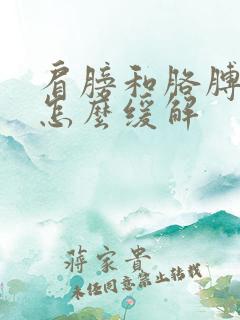 肩膀和胳膊
怎麽缓解
蒋家贵
未经同意禁止转载